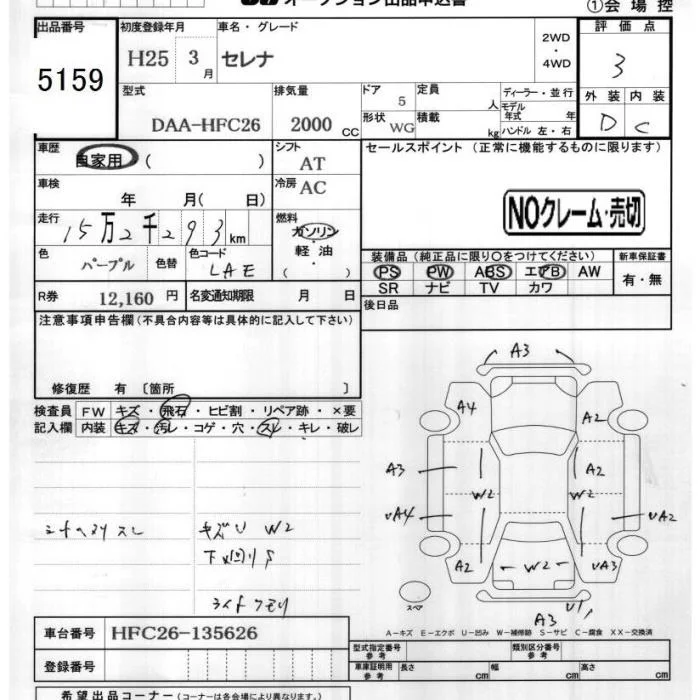 オークション出品申込書
①会場控
出品番号
5159
初度登録年月
H25 3月
車名・グレード
セレナ
2WD
・
4WD
評価点
3
外装 内装
D C
型式
DAA-HFC26
排気量
2000 CC
ドア
5
定員
人
形状
WG
積載
kg
ディーラー・並行
モデル
年式 年
ハンドル 左・右
車歴
自家用 ( )
シフト
AT
セールスポイント (正常に機能するものに限ります)
車検
年 月( 日)
冷房
AC
NOクレーム・売切
走行
15万2千293km
燃料
ガソリン
軽油
( )
色
パープル
色替
色コード
LAE
装備品 (純正品に限り〇をつけてください)
PS PW ABS エアB AW
SR ナビ TV カワ
新車保証書
有・無
R券
12,160 円
名変通知期限 月 日
後日品
注意事項申告欄 (不具合内容等は具体的に記入して下さい)
修復歴 有 〔箇所 〕
検査員
記入欄
FW キズ・飛石・ヒビ割・リペア跡・×要
内装 キズ・汚レ・コゲ・穴・スレ・キレ・破レ
シートヘタリ スレ
キズU W2
下廻りS
ライトクモリ
A3
A4
A2
A3
A2
W2
W2
UA4
UA2
A2
W2
UA3
スペア
A3
U1
A-キズ E-エクボ U-凹み W-補修跡 S-サビ C-腐食 XX-交換済
車台番号
HFC26-135626
登録番号
型式指定番号
参考
類別区分番号
参考
車庫証明用
参考
長さ cm
幅 cm
高さ cm
希望出品コーナー (コーナーは各会場により異なります。)